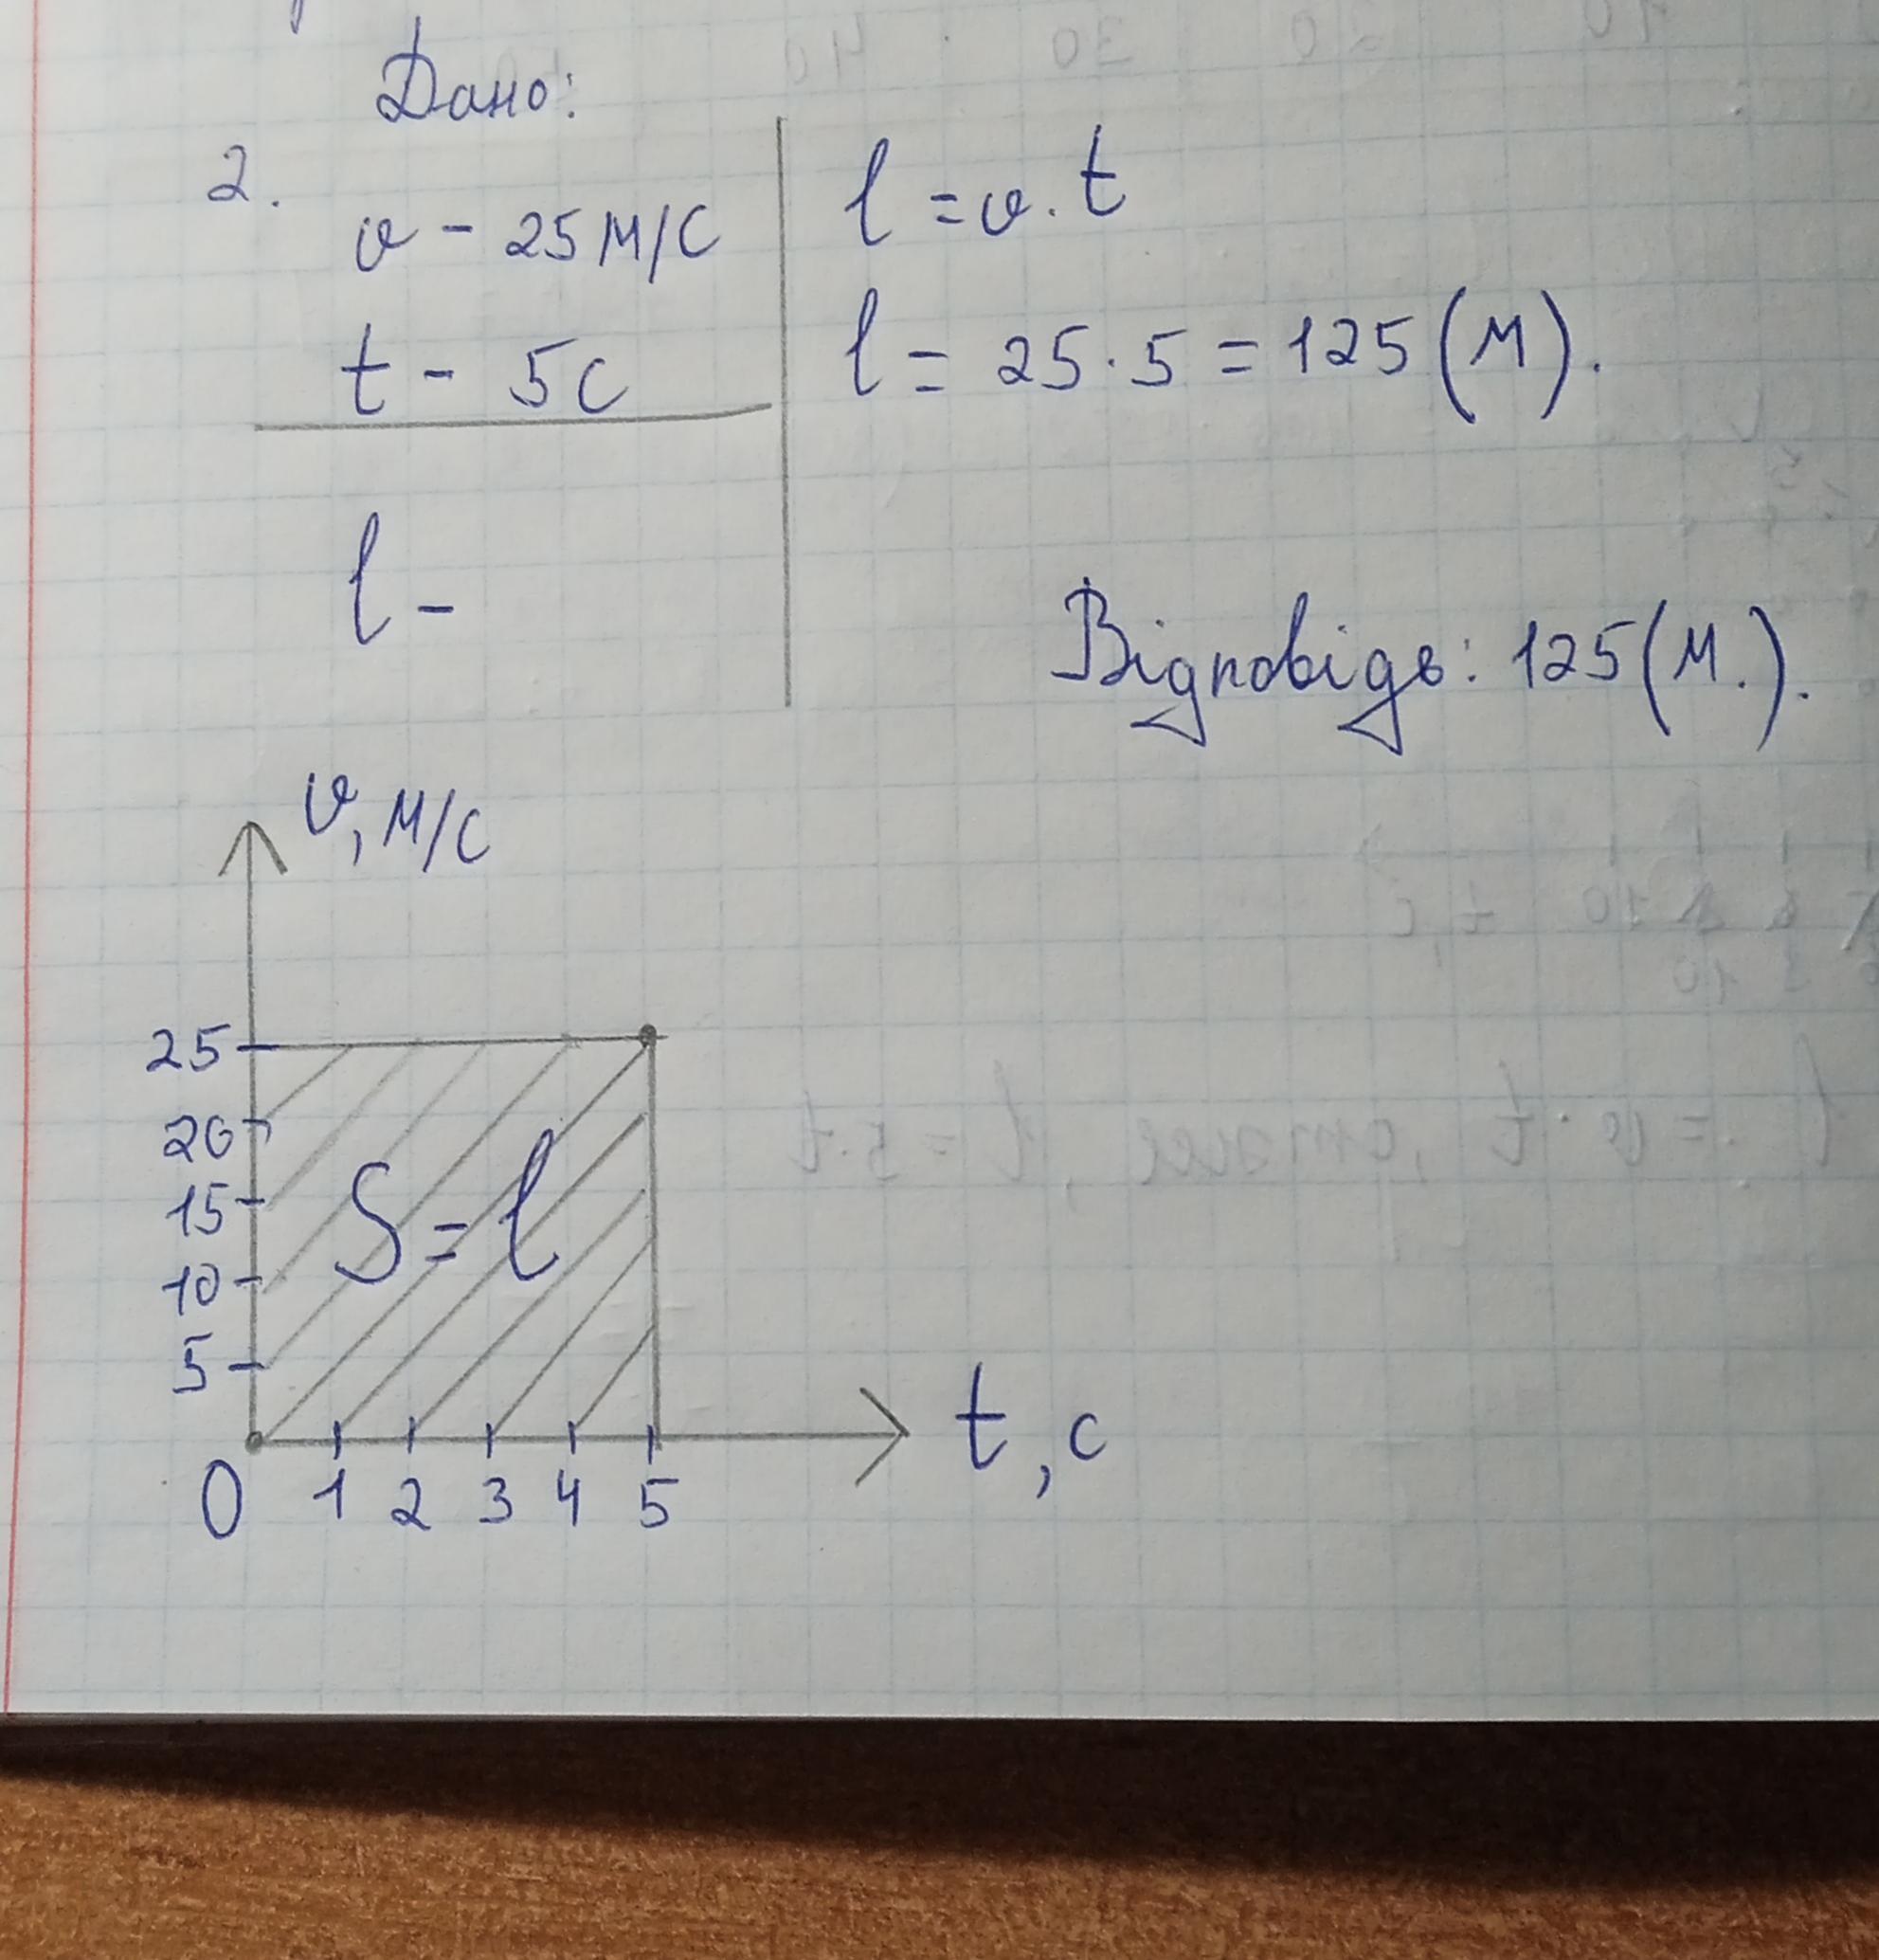 Дано:
2.
v - 25 м/с
t - 5с
l -
l = v · t
l = 25 · 5 = 125 (м).
Відповідь: 125 (м.).
v, м/с
25
20
15
10
5
S = l
0 1 2 3 4 5
t, с